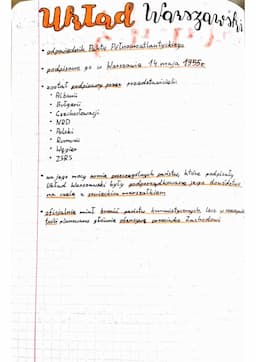 Układ Warszawski
• odpowiednik Paktu Północnoatlantyckiego
• podpisano go w Warszawie 14 maja 1955r.
• został podpisany przez przedstawicieli
• Albanii
• Bułgarii
• Czechosłowacji
• NRD
• Polski
• Rumunii
• Węgier
• ZSRS
• na jego mocy armie poszczególnych państw, które podpisały
Układ Warszawski były podporządkowane jego dowództwu
na czele z sowieckim marszałkiem
• oficjalnie miał bronić państw komunistycznych, lecz w rzeczywis
tości planowano głównie ofensywę przeciwko Zachodowi